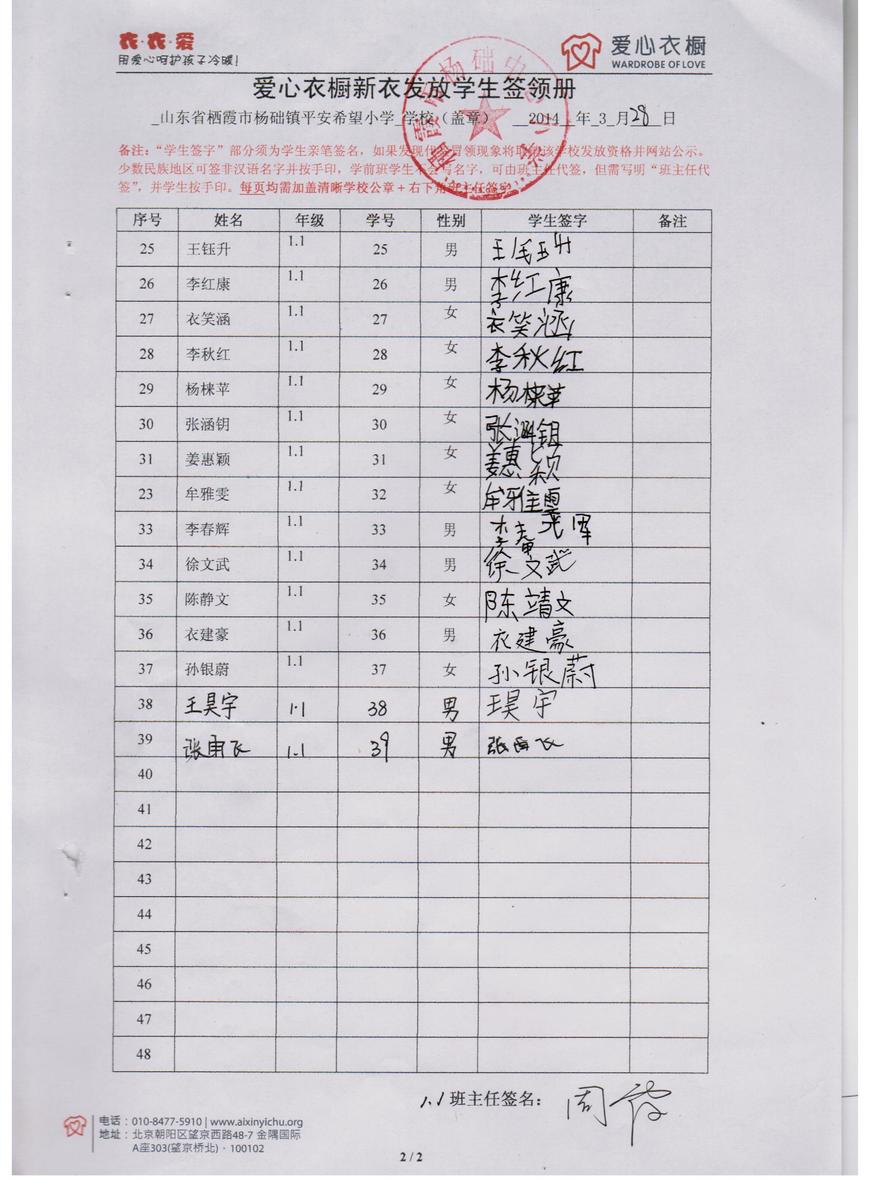 衣·衣·爱
用爱心呵护孩子冷暖!
爱心衣橱
WARDROBE OF LOVE
爱心衣橱新衣发放学生签领册
_山东省栖霞市杨础镇平安希望小学_学校(盖章) __2014__年_3_月28__日
备注:“学生签字”部分须为学生亲笔签名,如果发现代签冒领现象将取消该学校发放资格并网站公示。
少数民族地区可签非汉语名字并按手印,学前班学生不会写名字,可由班主任代签,但需写明“班主任代
签”,并学生按手印。每页均需加盖清晰学校公章+右下角班主任签字。
序号 姓名 年级 学号 性别 学生签字 备注
25 王钰升 1.1 25 男 王钰升
26 李红康 1.1 26 男 李红康
27 衣笑涵 1.1 27 女 衣笑涵
28 李秋红 1.1 28 女 李秋红
29 杨梾苹 1.1 29 女 杨梾苹
30 张涵钥 1.1 30 女 张涵钥
31 姜惠颖 1.1 31 女 姜惠颖
23 牟雅雯 1.1 32 女 牟雅雯
33 李春辉 1.1 33 男 李春辉
34 徐文武 1.1 34 男 徐文武
35 陈静文 1.1 35 女 陈靖文
36 衣建豪 1.1 36 男 衣建豪
37 孙银蔚 1.1 37 女 孙银蔚
38 王昊宇 1.1 38 男 王昊宇
39 张雨飞 1.1 39 男 张雨飞
40
41
42
43
44
45
46
47
48
1.1 班主任签名: 周霞
电话:010-8477-5910 | www.aixinyichu.org
地址:北京朝阳区望京西路48-7 金隅国际
A座303(望京桥北)·100102
2 / 2